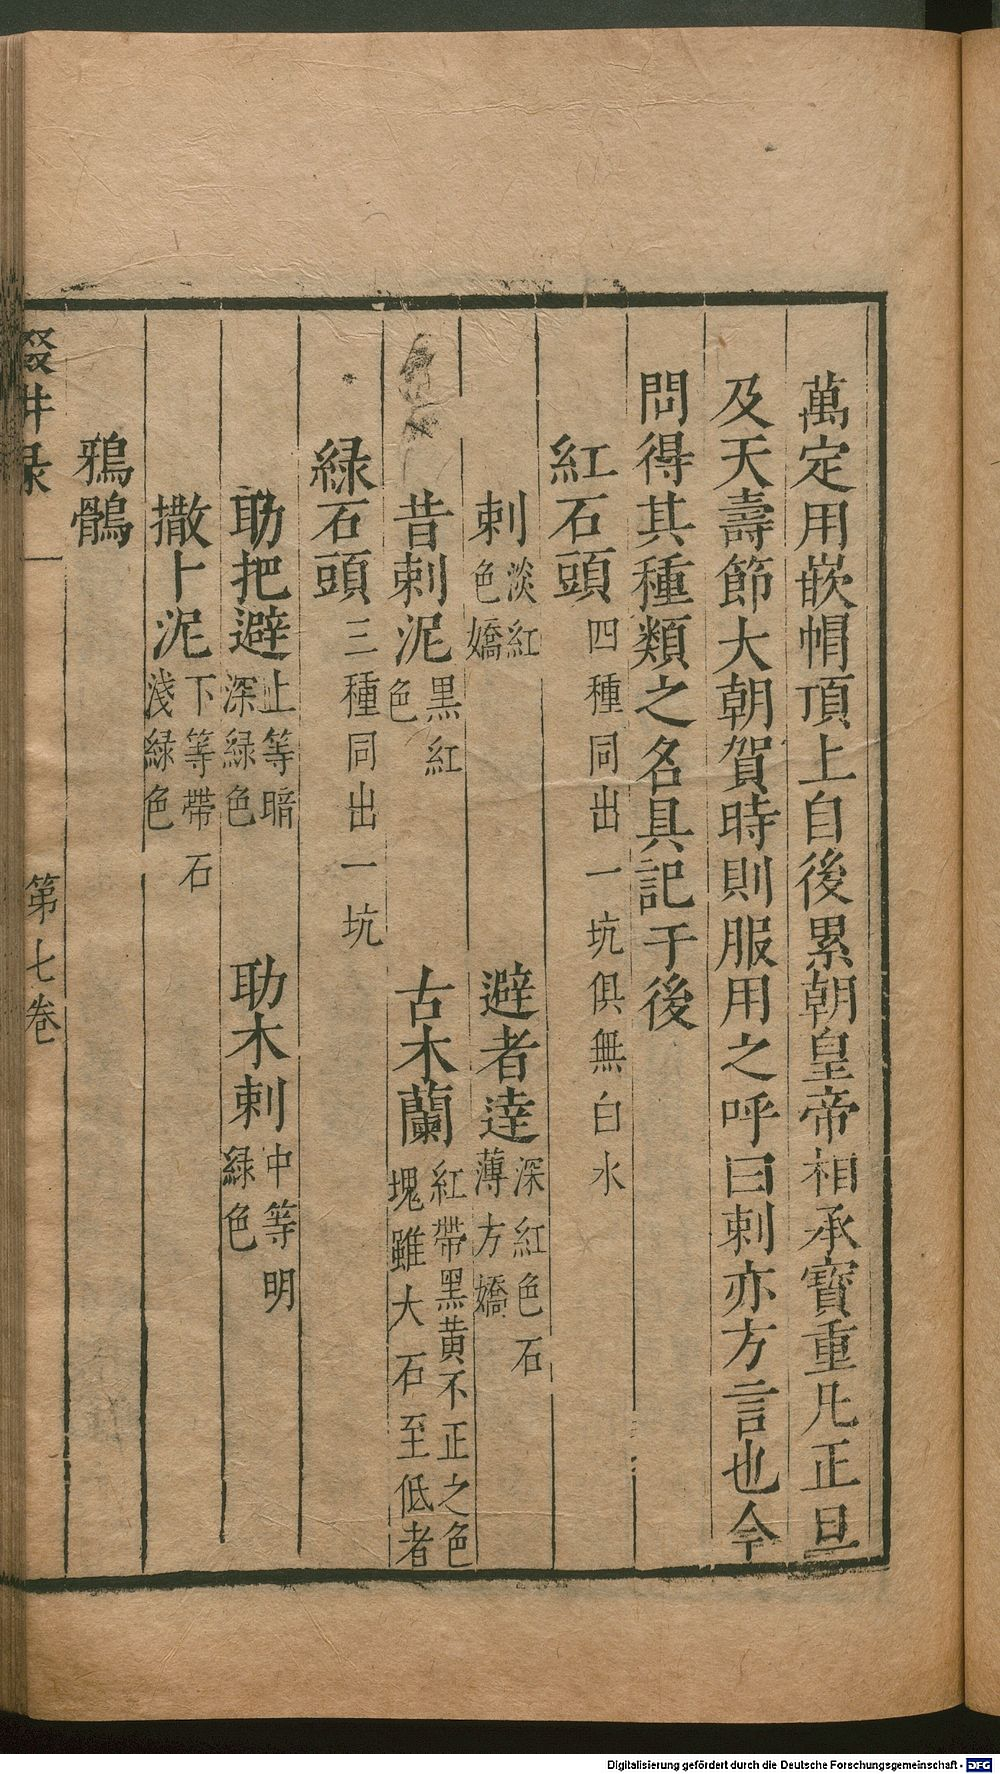 萬定用嵌帽頂上自後累朝皇帝相承寳重凡正旦
及天壽節大朝賀時則服用之呼曰剌亦方言也今
問得其種類之名具記于後
紅石頭四種同出一坑俱無白水
剌淡紅色嬌 避者達深紅色石薄方嬌
昔剌泥黑紅色 古木蘭紅帶黑黄不正之色塊雖大石至低者
緑石頭三種同出一坑
助把避上等暗深緑色 助木剌中等明緑色
撒卜泥下等帶石淺緑色
鴉鶻
輟耕录 第七卷
Digitalisierung gefördert durch die Deutsche Forschungsgemeinschaft - DFG